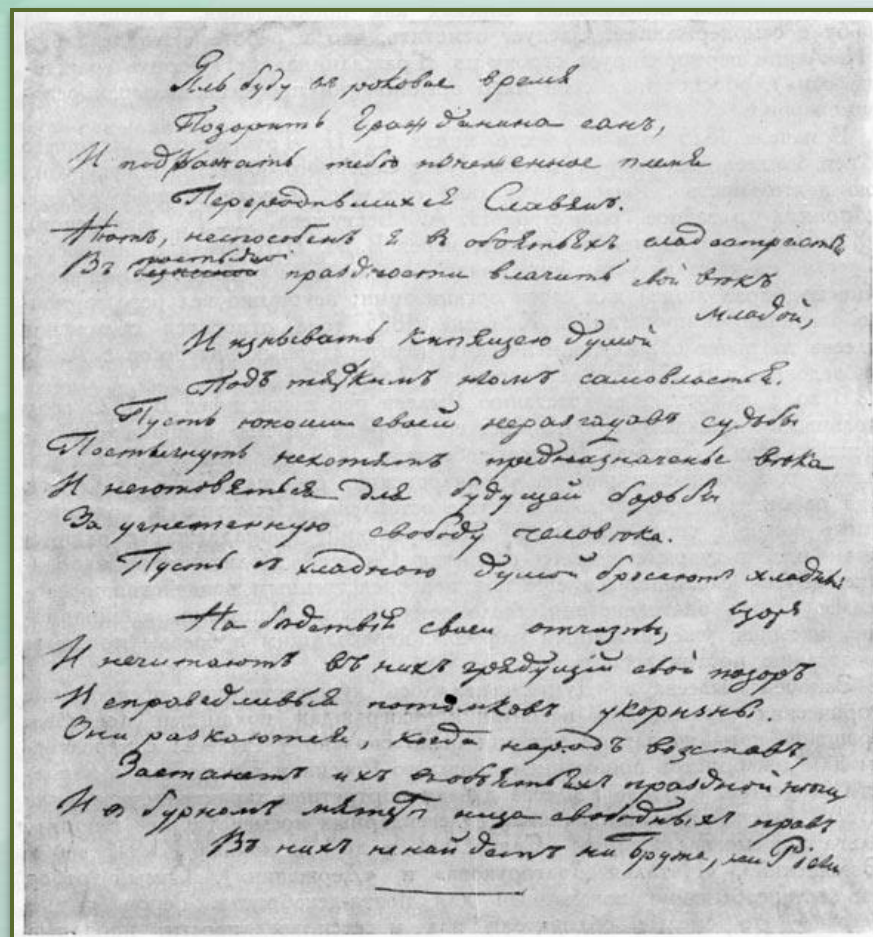 Яль буду въ роковое время
Позорить Гражданина санъ,
И подражать тебѣ изнеженное племя
Переродившихся Славянъ.
Нѣтъ, неспособенъ я въ объятьяхъ сладострастья,
Въ постыдной праздности влачить свой вѣкъ
младой,
И изнывать кипящею думой
Подъ тяжкимъ игомъ самовластья.
Пусть юноши своей неразгадавъ судьбы
Постигнуть нехотятъ предназначенье вѣка
И неготовятся для будущей борьбы
За угнетенную свободу человѣка.
Пусть съ хладною думой бросаютъ хладный
взоръ
На бѣдствія своей отчизны,
И нечитаютъ въ нихъ грядущій свой позоръ
И справедливыя потомковъ укоризны.
Они раскаются, когда народъ возставъ,
Застанетъ ихъ въ объятьяхъ праздной нѣги
И въ бурномъ мятежѣ ища свободныхъ правъ
Въ нихъ ненайдетъ ни Брута, ни Ріеги